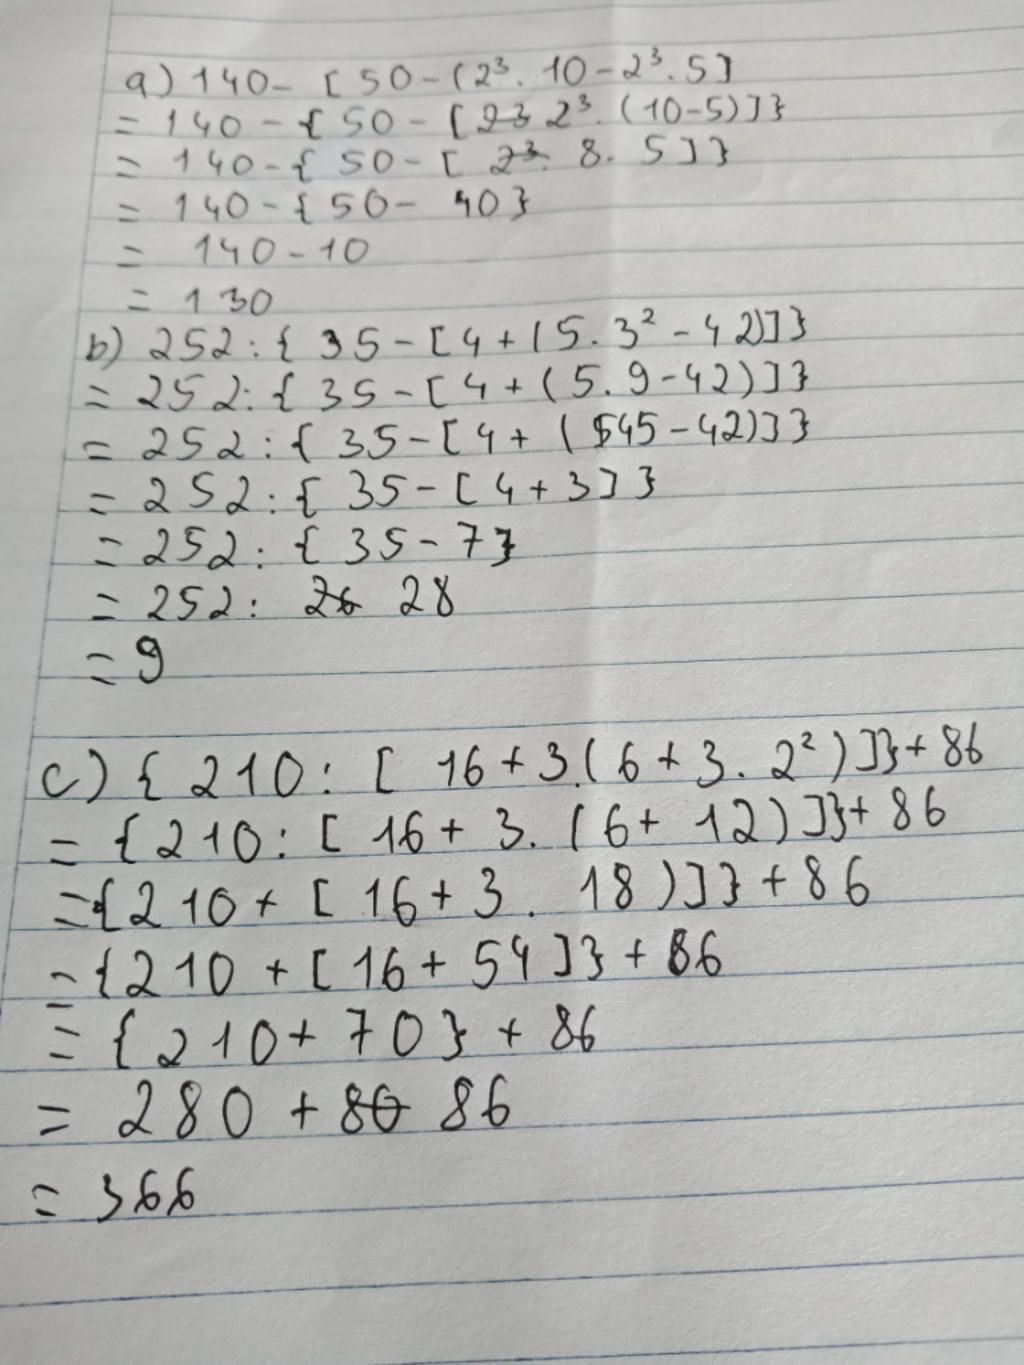 a) 140 - [ 50 - (2³. 10 - 2³. 5]
= 140 - { 50 - [ 23 2³. (10-5)]}
= 140 - { 50 - [ 2³. 8. 5]}
= 140 - { 50 - 40}
= 140 - 10
= 130
b) 252 : { 35 - [ 4 + ( 5. 3² - 42)]}
= 252 : { 35 - [ 4 + ( 5. 9 - 42)]}
= 252 : { 35 - [ 4 + ( 45 - 42)]}
= 252 : { 35 - [ 4 + 3]}
= 252 : { 35 - 7}
= 252 : 26 28
= 9
c) { 210 : [ 16 + 3.( 6 + 3. 2²)]} + 86
= { 210 : [ 16 + 3. ( 6 + 12)]} + 86
= { 210 + [ 16 + 3. 18)]} + 86
= { 210 + [ 16 + 54 ]} + 86
= { 210 + 70 } + 86
= 280 + 80 86
= 366